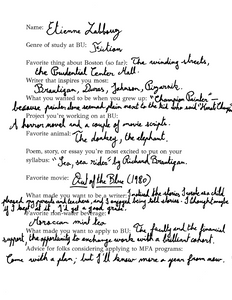 Name: Etienne
Genre of study at BU: Fiction
Favorite thing about Boston (so far): The winding streets,
the Prudential Center Mall.
Writer that inspires you most:
Brautigan, Johnson, Pizarnik.
What you wanted to be when you grew up: "Champion Painter" —
because painter alone seemed plain next to the
Project you're working on at BU:
A horror novel and a couple of movie scripts.
Favorite animal:
The donkey, the elephant.
Poem, story, or essay you're most excited to put on your
syllabus: "Sea, sea rider" by Richard Brautigan.
Favorite movie: Out of the Blue (1980)
What made you want to be a writer? I noticed the stories I wrote as a child
pleased my parents and teachers, and I enjoyed being told stories. I thought maybe
if I kept at it, I'd get a good grade.
Favorite non-water beverage:
Moroccan mint tea
What made you want to apply to BU: The faculty and the financial
support, the opportunity to exchange work with a brilliant cohort.
Advice for folks considering applying to MFA programs:
Come with a plan; but I'll know more a year from now.